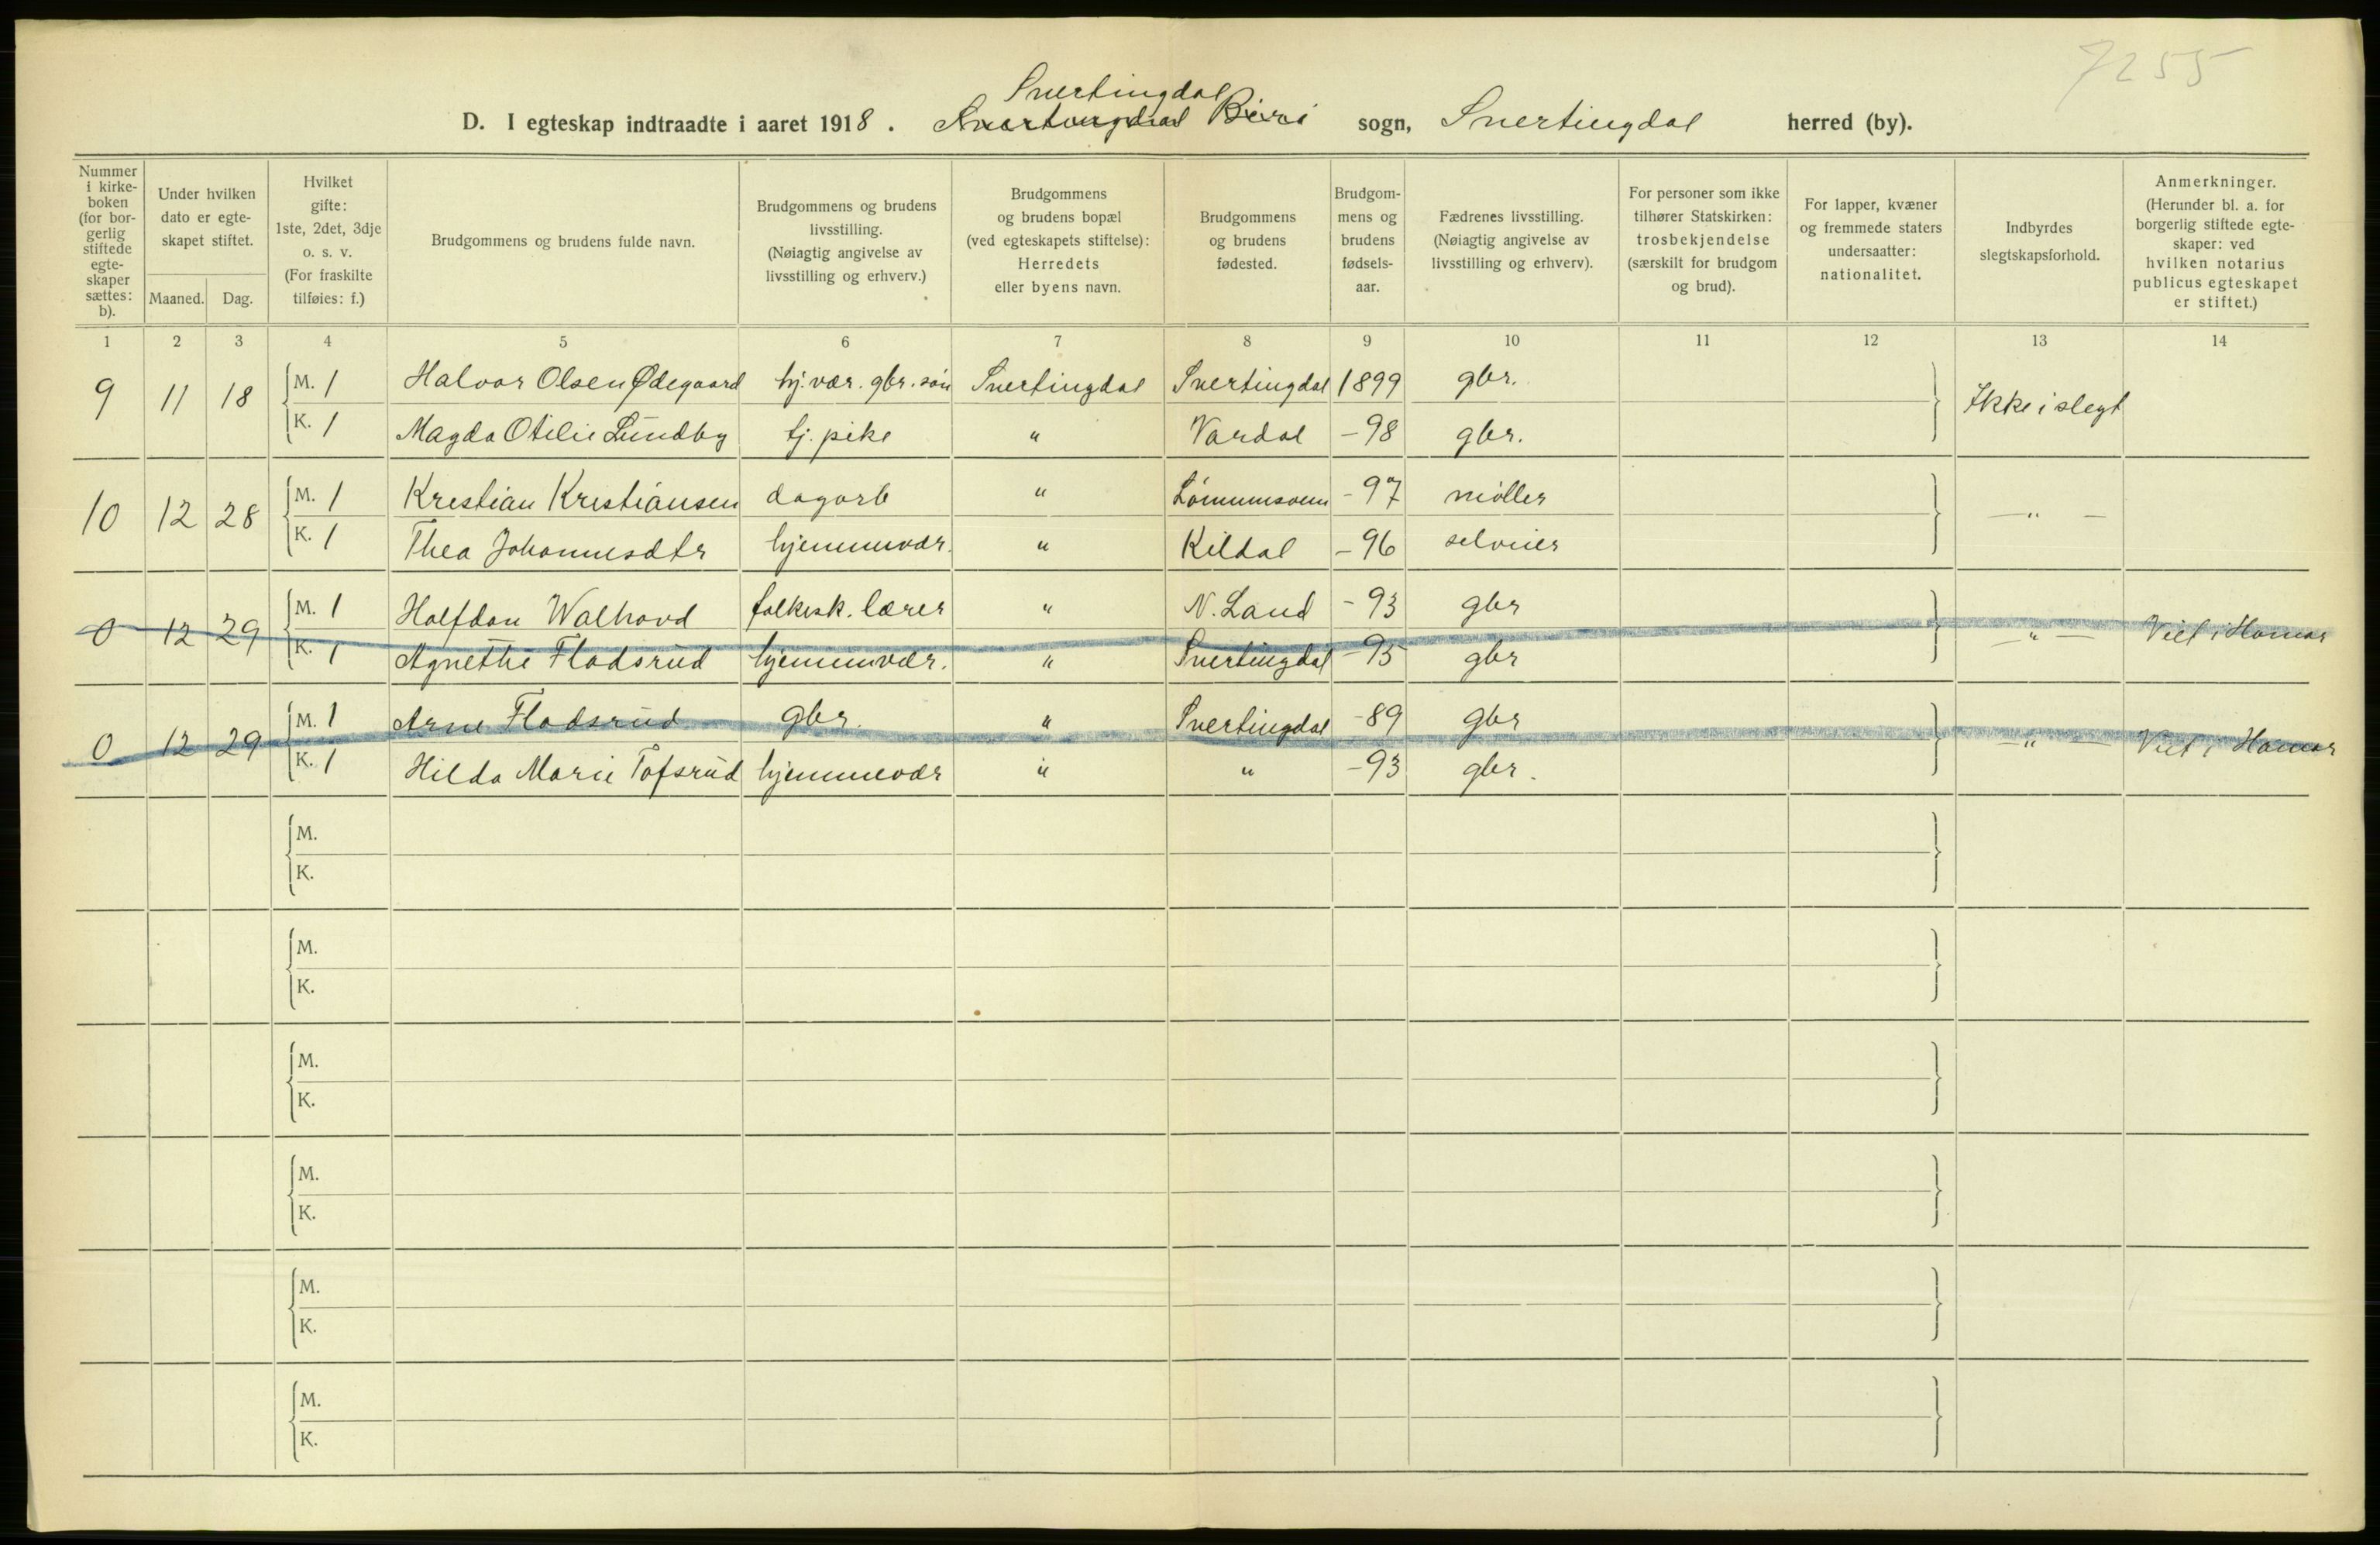 7255
Snertingdal
D. I egteskap indtraadte i aaret 1918. Snertingdal Biri sogn, Snertingdal herred (by).
Nummer i kirke-boken (for bor-gerlig stiftede egte-skaper sættes: b).
Under hvilken dato er egte-skapet stiftet.
Maaned. Dag.
Hvilket gifte: 1ste, 2det, 3dje o. s. v. (For fraskilte tilføies: f.)
Brudgommens og brudens fulde navn.
Brudgommens og brudens livsstilling. (Nøiagtig angivelse av livsstilling og erhverv.)
Brudgommens og brudens bopæl (ved egteskapets stiftelse): Herredets eller byens navn.
Brudgommens og brudens fødested.
Brudgom-mens og brudens fødsels-aar.
Fædrenes livsstilling. (Nøiagtig angivelse av livsstilling og erhverv).
For personer som ikke tilhører Statskirken: trosbekjendelse (særskilt for brudgom og brud).
For lapper, kvæner og fremmede staters undersaatter: nationalitet.
Indbyrdes slegtskapsforhold.
Anmerkninger. (Herunder bl. a. for borgerlig stiftede egte-skaper: ved hvilken notarius publicus egteskapet er stiftet.)
1 2 3 4 5 6 7 8 9 10 11 12 13 14
9 11 18 M. 1 Halvor Olsen Ødegaard hj. vær. gbr. søn Snertingdal Snertingdal 1899 gbr. Ikke i slegt
K. 1 Magda Otilie Lundby tj. pike " Vardal -98 gbr.
10 12 28 M. 1 Kristian Kristiansen dagarb " -97 møller - " -
K. 1 Thea Johannesdtr hjemmevær. " Kildal -96 selveier
0 12 29 M. 1 Halfdan Walhovd folkesk. lærer " N. Land -93 gbr - " - Viet i Hamar
K. 1 Agnethe Fladsrud hjemmevær. " Snertingdal -95 gbr
0 12 29 M. 1 Arne Fladsrud gbr. " Snertingdal -89 gbr - " - Viet i Hamar
K. 1 Hilda Marie Tofsrud hjemmevær " " -93 gbr.
M.
K.
M.
K.
M.
K.
M.
K.
M.
K.
M.
K.